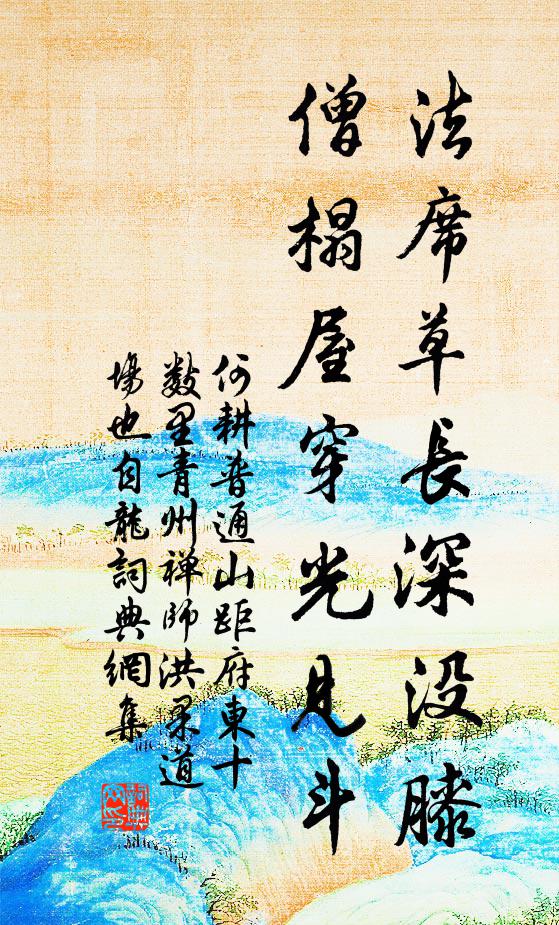 法席草長深没膝
僧榻屋穿光見斗
何耕普通山距府東十
数里青州禅師洪杲道
場也自龍詞典網集